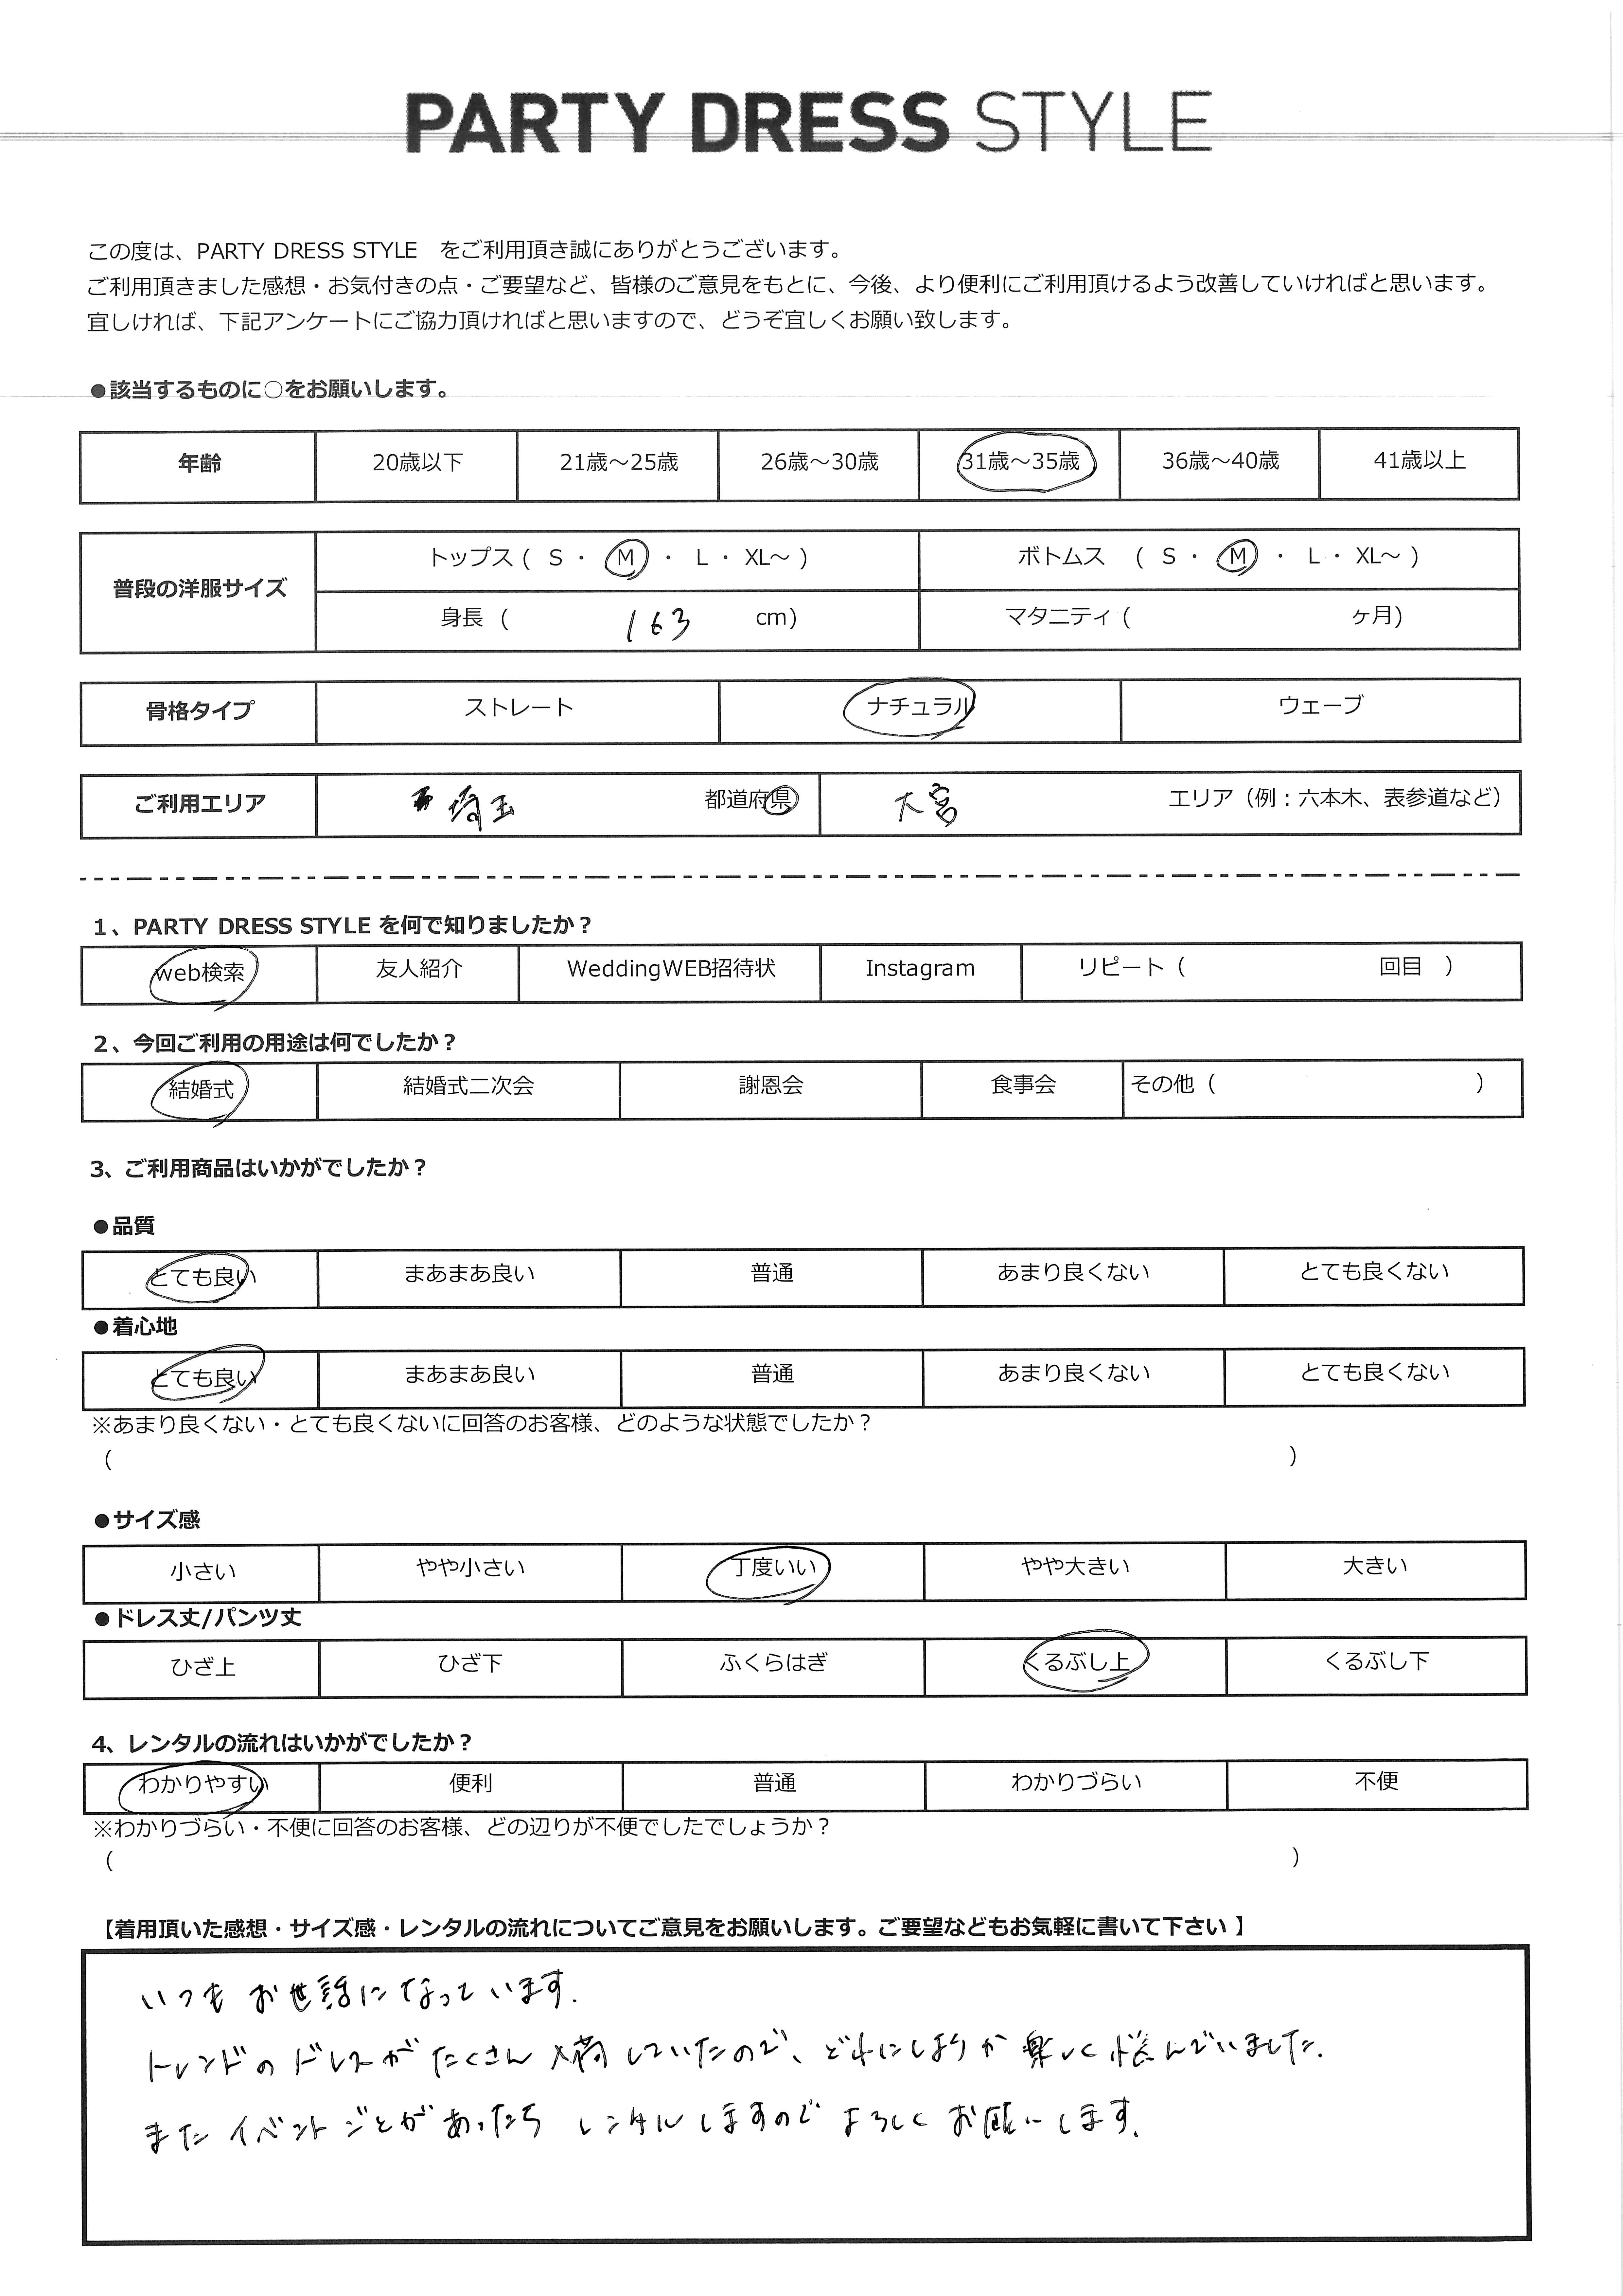 PARTY DRESS STYLE
この度は、PARTY DRESS STYLE をご利用頂き誠にありがとうございます。
ご利用頂きました感想・お気付きの点・ご要望など、皆様のご意見をもとに、今後、より便利にご利用頂けるよう改善していければと思います。
宜しければ、下記アンケートにご協力頂ければと思いますので、どうぞ宜しくお願い致します。
●該当するものに○をお願いします。
年齢 20歳以下 21歳～25歳 26歳～30歳 31歳～35歳 36歳～40歳 41歳以上
普段の洋服サイズ トップス ( S ・ M ・ L ・ XL～ ) ボトムス ( S ・ M ・ L ・ XL～ )
身長 ( 163 cm) マタニティ ( ヶ月)
骨格タイプ ストレート ナチュラル ウェーブ
ご利用エリア 埼玉 都道府県 大宮 エリア（例：六本木、表参道など）
1、PARTY DRESS STYLE を何で知りましたか？
web検索 友人紹介 WeddingWEB招待状 Instagram リピート ( 回目 )
2、今回ご利用の用途は何でしたか？
結婚式 結婚式二次会 謝恩会 食事会 その他 ( )
3、ご利用商品はいかがでしたか？
●品質
とても良い まあまあ良い 普通 あまり良くない とても良くない
●着心地
とても良い まあまあ良い 普通 あまり良くない とても良くない
※あまり良くない・とても良くないに回答のお客様、どのような状態でしたか？
( )
●サイズ感
小さい やや小さい 丁度いい やや大きい 大きい
●ドレス丈/パンツ丈
ひざ上 ひざ下 ふくらはぎ くるぶし上 くるぶし下
4、レンタルの流れはいかがでしたか？
わかりやすい 便利 普通 わかりづらい 不便
※わかりづらい・不便に回答のお客様、どの辺りが不便でしたでしょうか？
( )
【着用頂いた感想・サイズ感・レンタルの流れについてご意見をお願いします。ご要望などもお気軽に書いて下さい】
いつも お世話に なっています.
トレンドの ドレスが たくさん 入荷していたので、どれにしようか 楽しく 悩んでいました.
また イベントごとが あったら レンタルしますので よろしく お願いします.